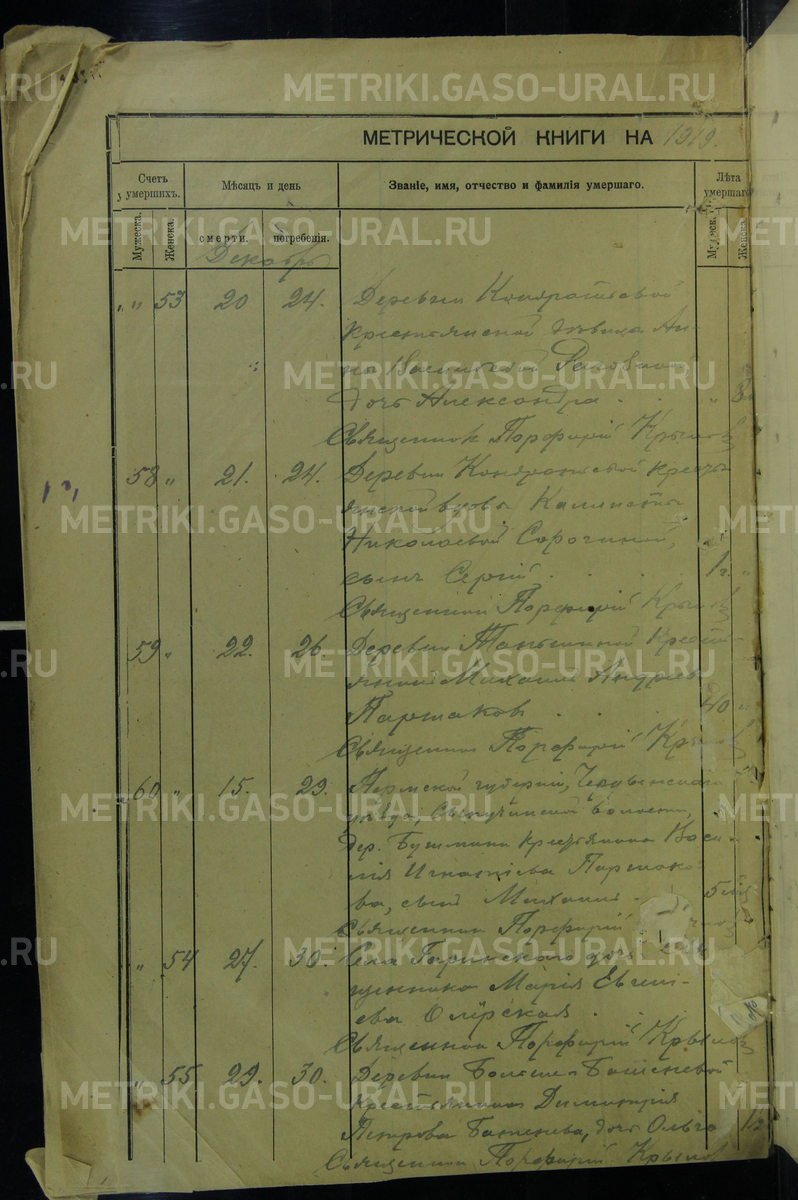 МЕТРИЧЕСКОЙ КНИГИ НА 1919.
Счетъ умершихъ.
Мѣсяцъ и день
Званіе, имя, отчество и фамилія умершаго.
Лѣта умершаго
Мужеска.
Женска.
смерти.
погребенія.
Мужск.
Женск.
Декабрь
" " 53 20 24. Деревни Кондратьевой
крестьянской дѣвицы Ан-
ны
дочь Александра
Священник Порфирій Крылов
58 " 21. 24. Деревни Кондратьевой кресть
янской вдовы
Николаевой Сорочиной,
сынъ Сергій 1 г. "
Священник Порфирій Крылов
59 " 22. 26. Деревни Крестья-
нинъ Михаил Андреев
Паршаков 40 "
Священник Порфирій Крылов
60 " 15. 29. Пермской губерніи, Чердынскаго
уѣзда, волости,
дер. Бушмана крестьянина Васи-
лія Игнатіева Паршако-
ва, сын Михаил 5
Священник Порфирій
" 54 27. 30. Села Гаринскаго дочь
щенника Марія Евгені-
ева
Священник Порфирій Крылов
" 55 29. 30. Деревни
Крестьянина Димитрія
Петрова дочь Ольга 1 г.
Священник Порфирій Крылов
METRIKI.GASO-URAL.RU